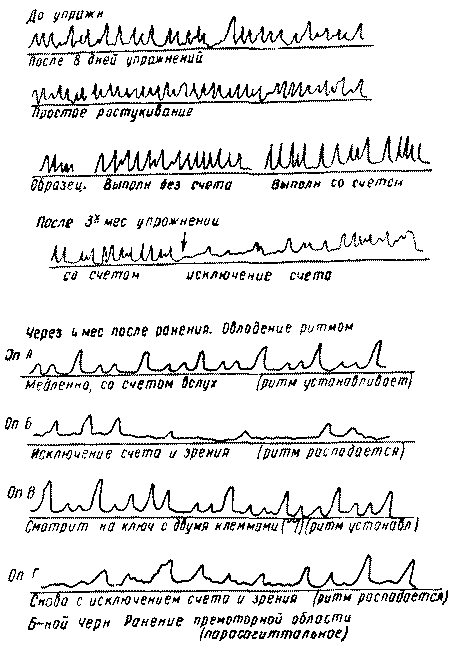 До упражн
После 8 дней упражнений
Простое растукивание
Образец. Выполн без счета Выполн со счетом
После 3х мес упражнений
со счетом исключение счета
Через 4 мес после ранения. Овладение ритмом
Оп А
Медленно, со счетом вслух (ритм устанавливает)
Оп Б
Исключение счета и зрения (ритм распадается)
Оп В
Смотрит на ключ с двумя клеммами (ритм устанавл)
Оп Г
Снова с исключением счета и зрения (ритм распадается)
Б-ной Черн Ранение премоторной области
(парасагиттальное)